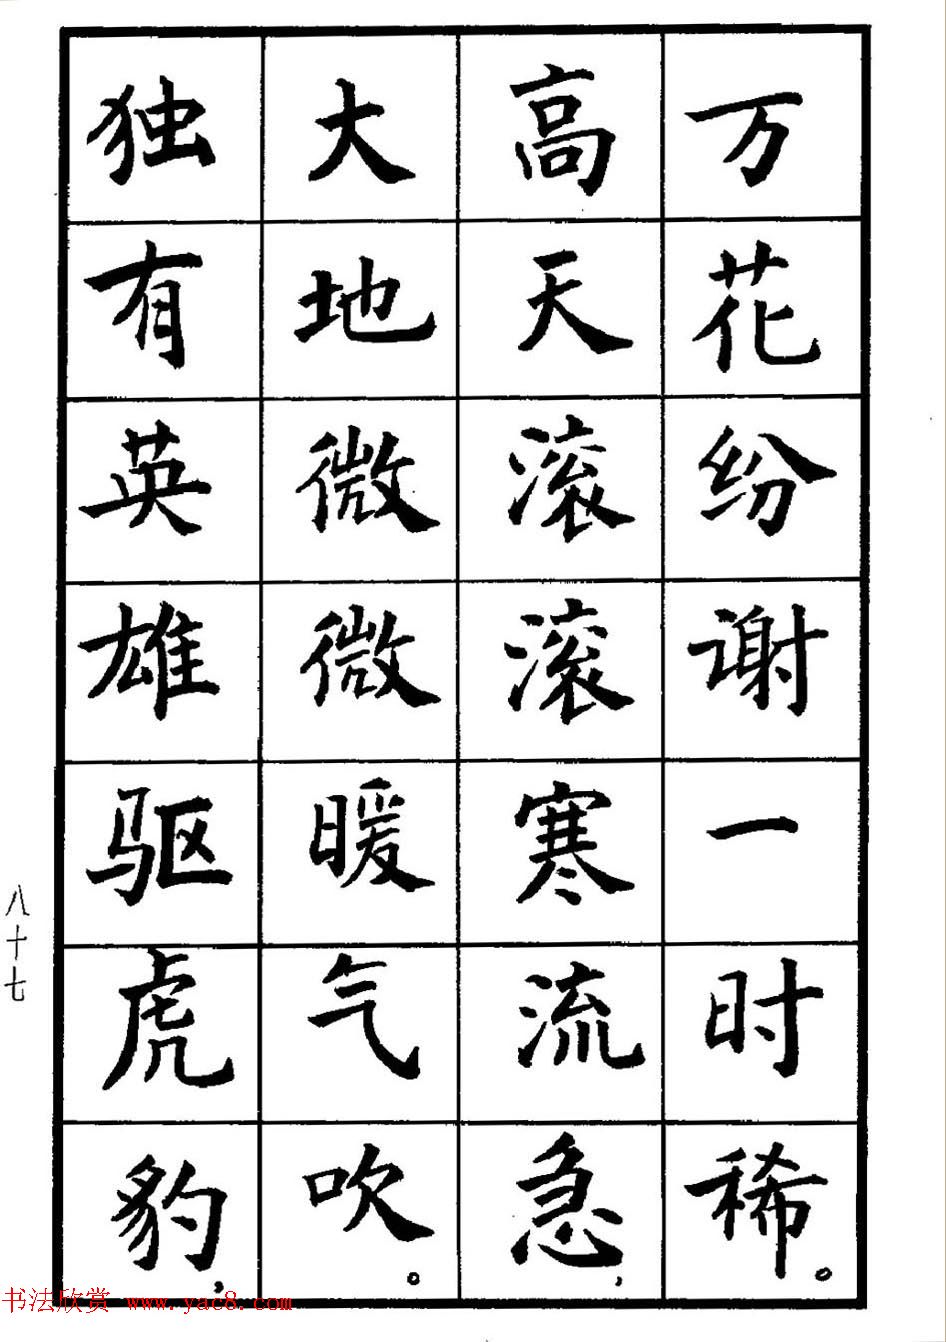 万花纷谢一时稀。
高天滚滚寒流急，
大地微微暖气吹。
独有英雄驱虎豹，
八十七
书法欣赏 www.yac8.com